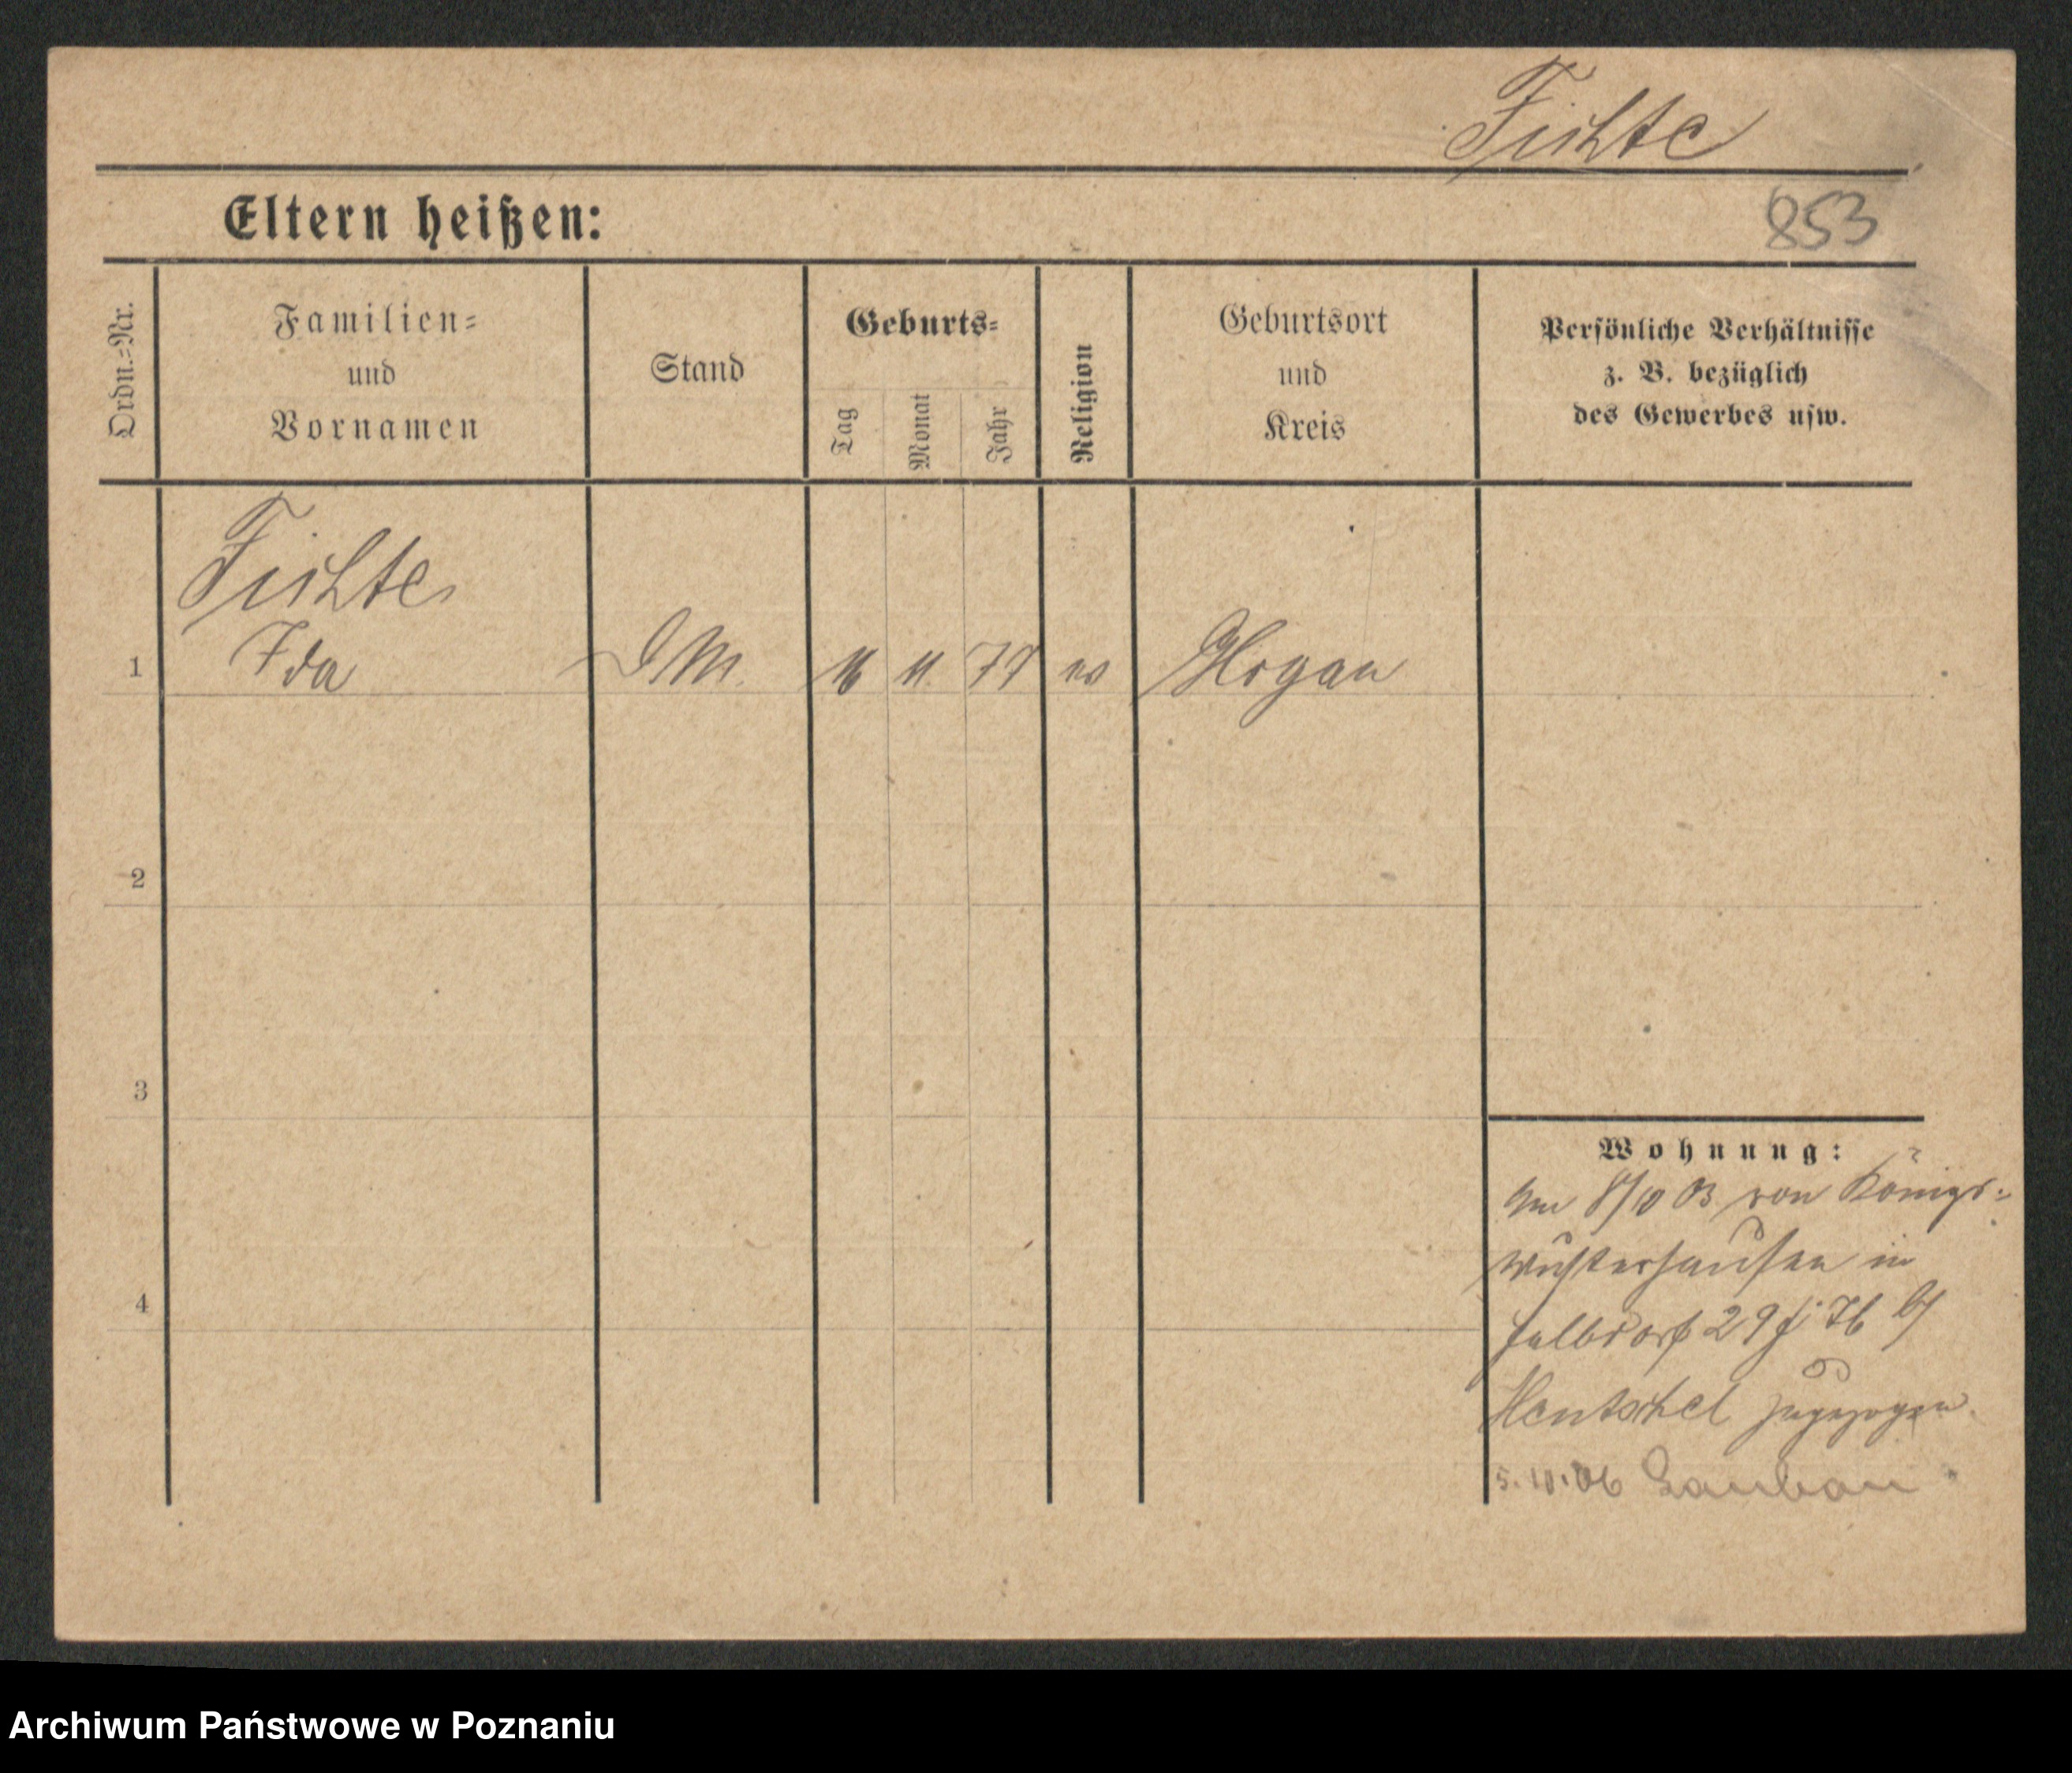 Fichte
Eltern heißen:
853
Ordn.=Nr.
Familien=
und
Vornamen
Stand
Geburts=
Tag
Monat
Jahr
Religion
Geburtsort
und
Kreis
Persönliche Verhältnisse
z. B. bezüglich
des Gewerbes usw.
Fichte
1 Ida DM. 16 11 77 ev Glogau
2
3
4
Wohnung:
Am 8/10 03 von Königs=
wusterhausen in
29
Hentschel zugezogen.
5.10.06 Lauban
Archiwum Państwowe w Poznaniu